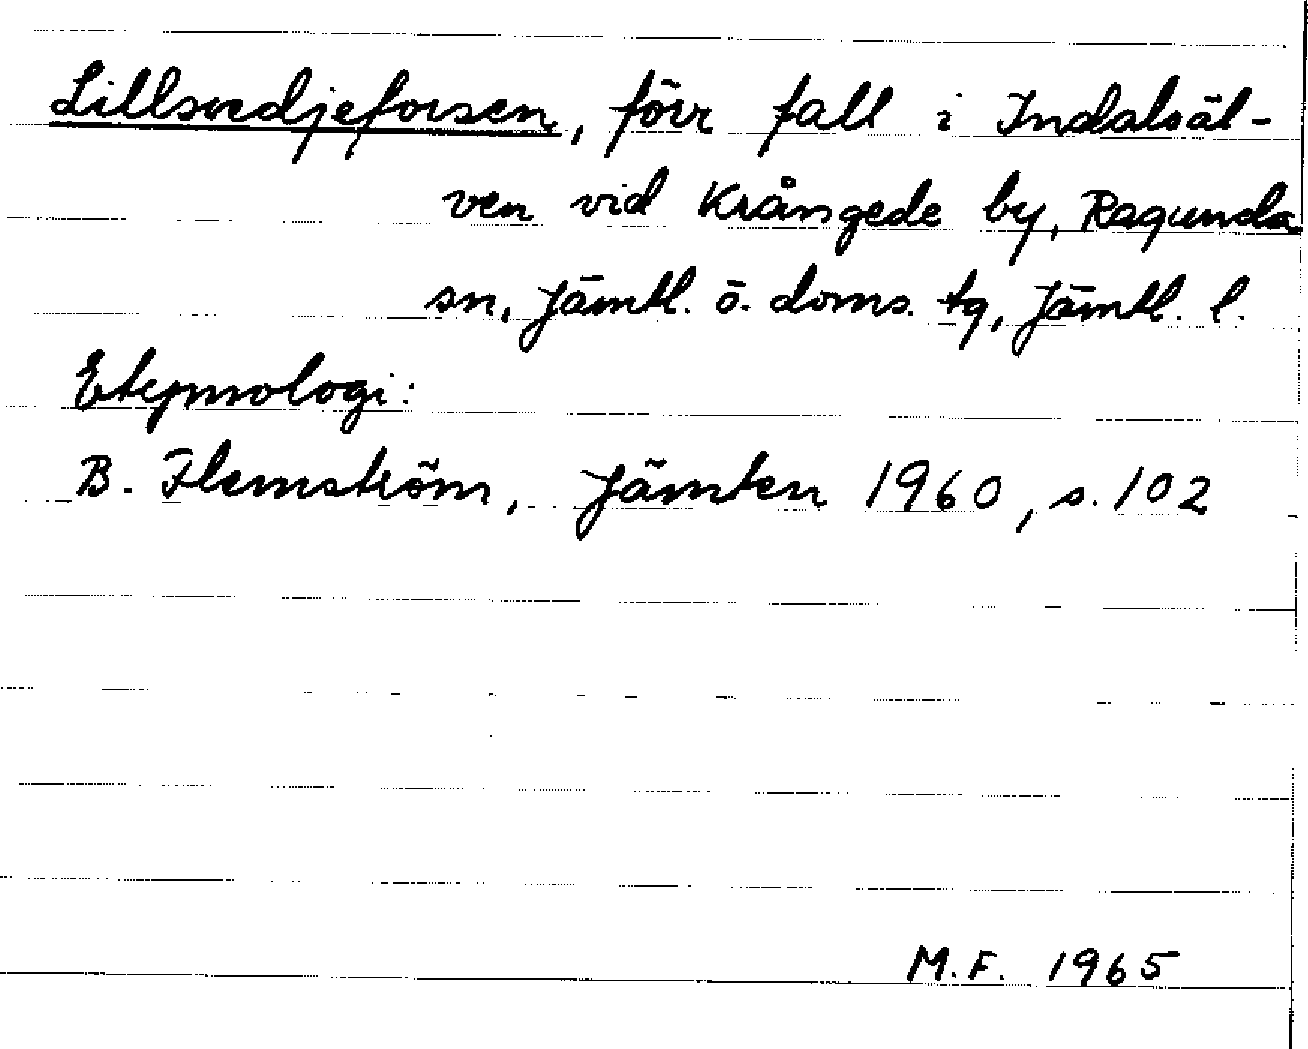 Lillsvedjeforsen, förr fall i Indalsäl-
ven vid Krångede by, Ragunda
sn, Jämtl. ö. doms. tg, Jämtl. l.
Etymologi:
B. Flemström, Jämten 1960, s. 102
M.F. 1965